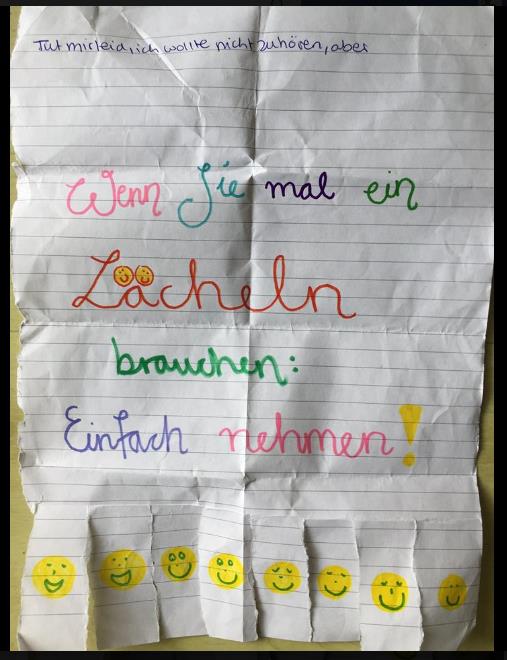 Tut mir leid, ich wollte nicht zuhören, aber
Wenn Sie mal ein
Lächeln
brauchen:
Einfach nehmen!